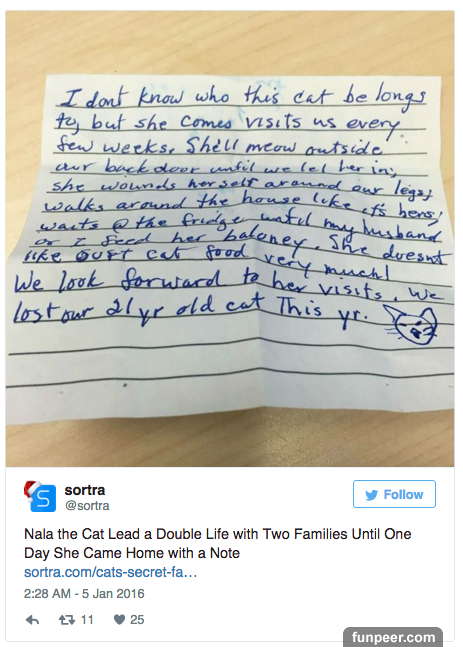 I dont know who this cat belongs
to, but she comes visits us every
few weeks. She'll meow outside
our backdoor until we let her in,
she wounds herself around our legs,
walks around the house like it's hers,
waits @ the fridge until my husband
or I feed her baloney. She doesnt
like our cat food very much!
We look forward to her visits. We
lost our 21 yr old cat This yr.
sortra
@sortra
Follow
Nala the Cat Lead a Double Life with Two Families Until One
Day She Came Home with a Note
sortra.com/cats-secret-fa...
2:28 AM - 5 Jan 2016
11 25
funpeer.com